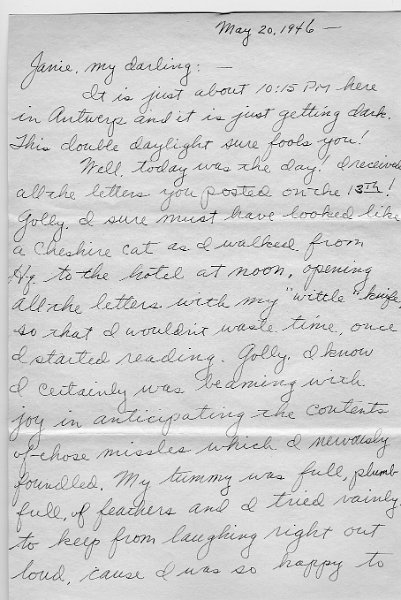 May 20, 1946 —
Janie, my darling: —
It is just about 10:15 PM here
in Antwerp and it is just getting dark.
This double daylight sure fools you!
Well, today was the day! I received
all the letters you posted on the 13th!
Golly, I sure must have looked like
a Cheshire cat as I walked from
Hq. to the hotel at noon, opening
all the letters with my "wittle" knife,
so that I wouldn't waste time, once
I started reading. Golly, I know
I certainly was beaming with
joy in anticipating the contents
of those missles which I nervously
foundled. My tummy was full, plumb
full, of feathers and I tried vainly
to keep from laughing right out
loud, 'cause I was so happy to